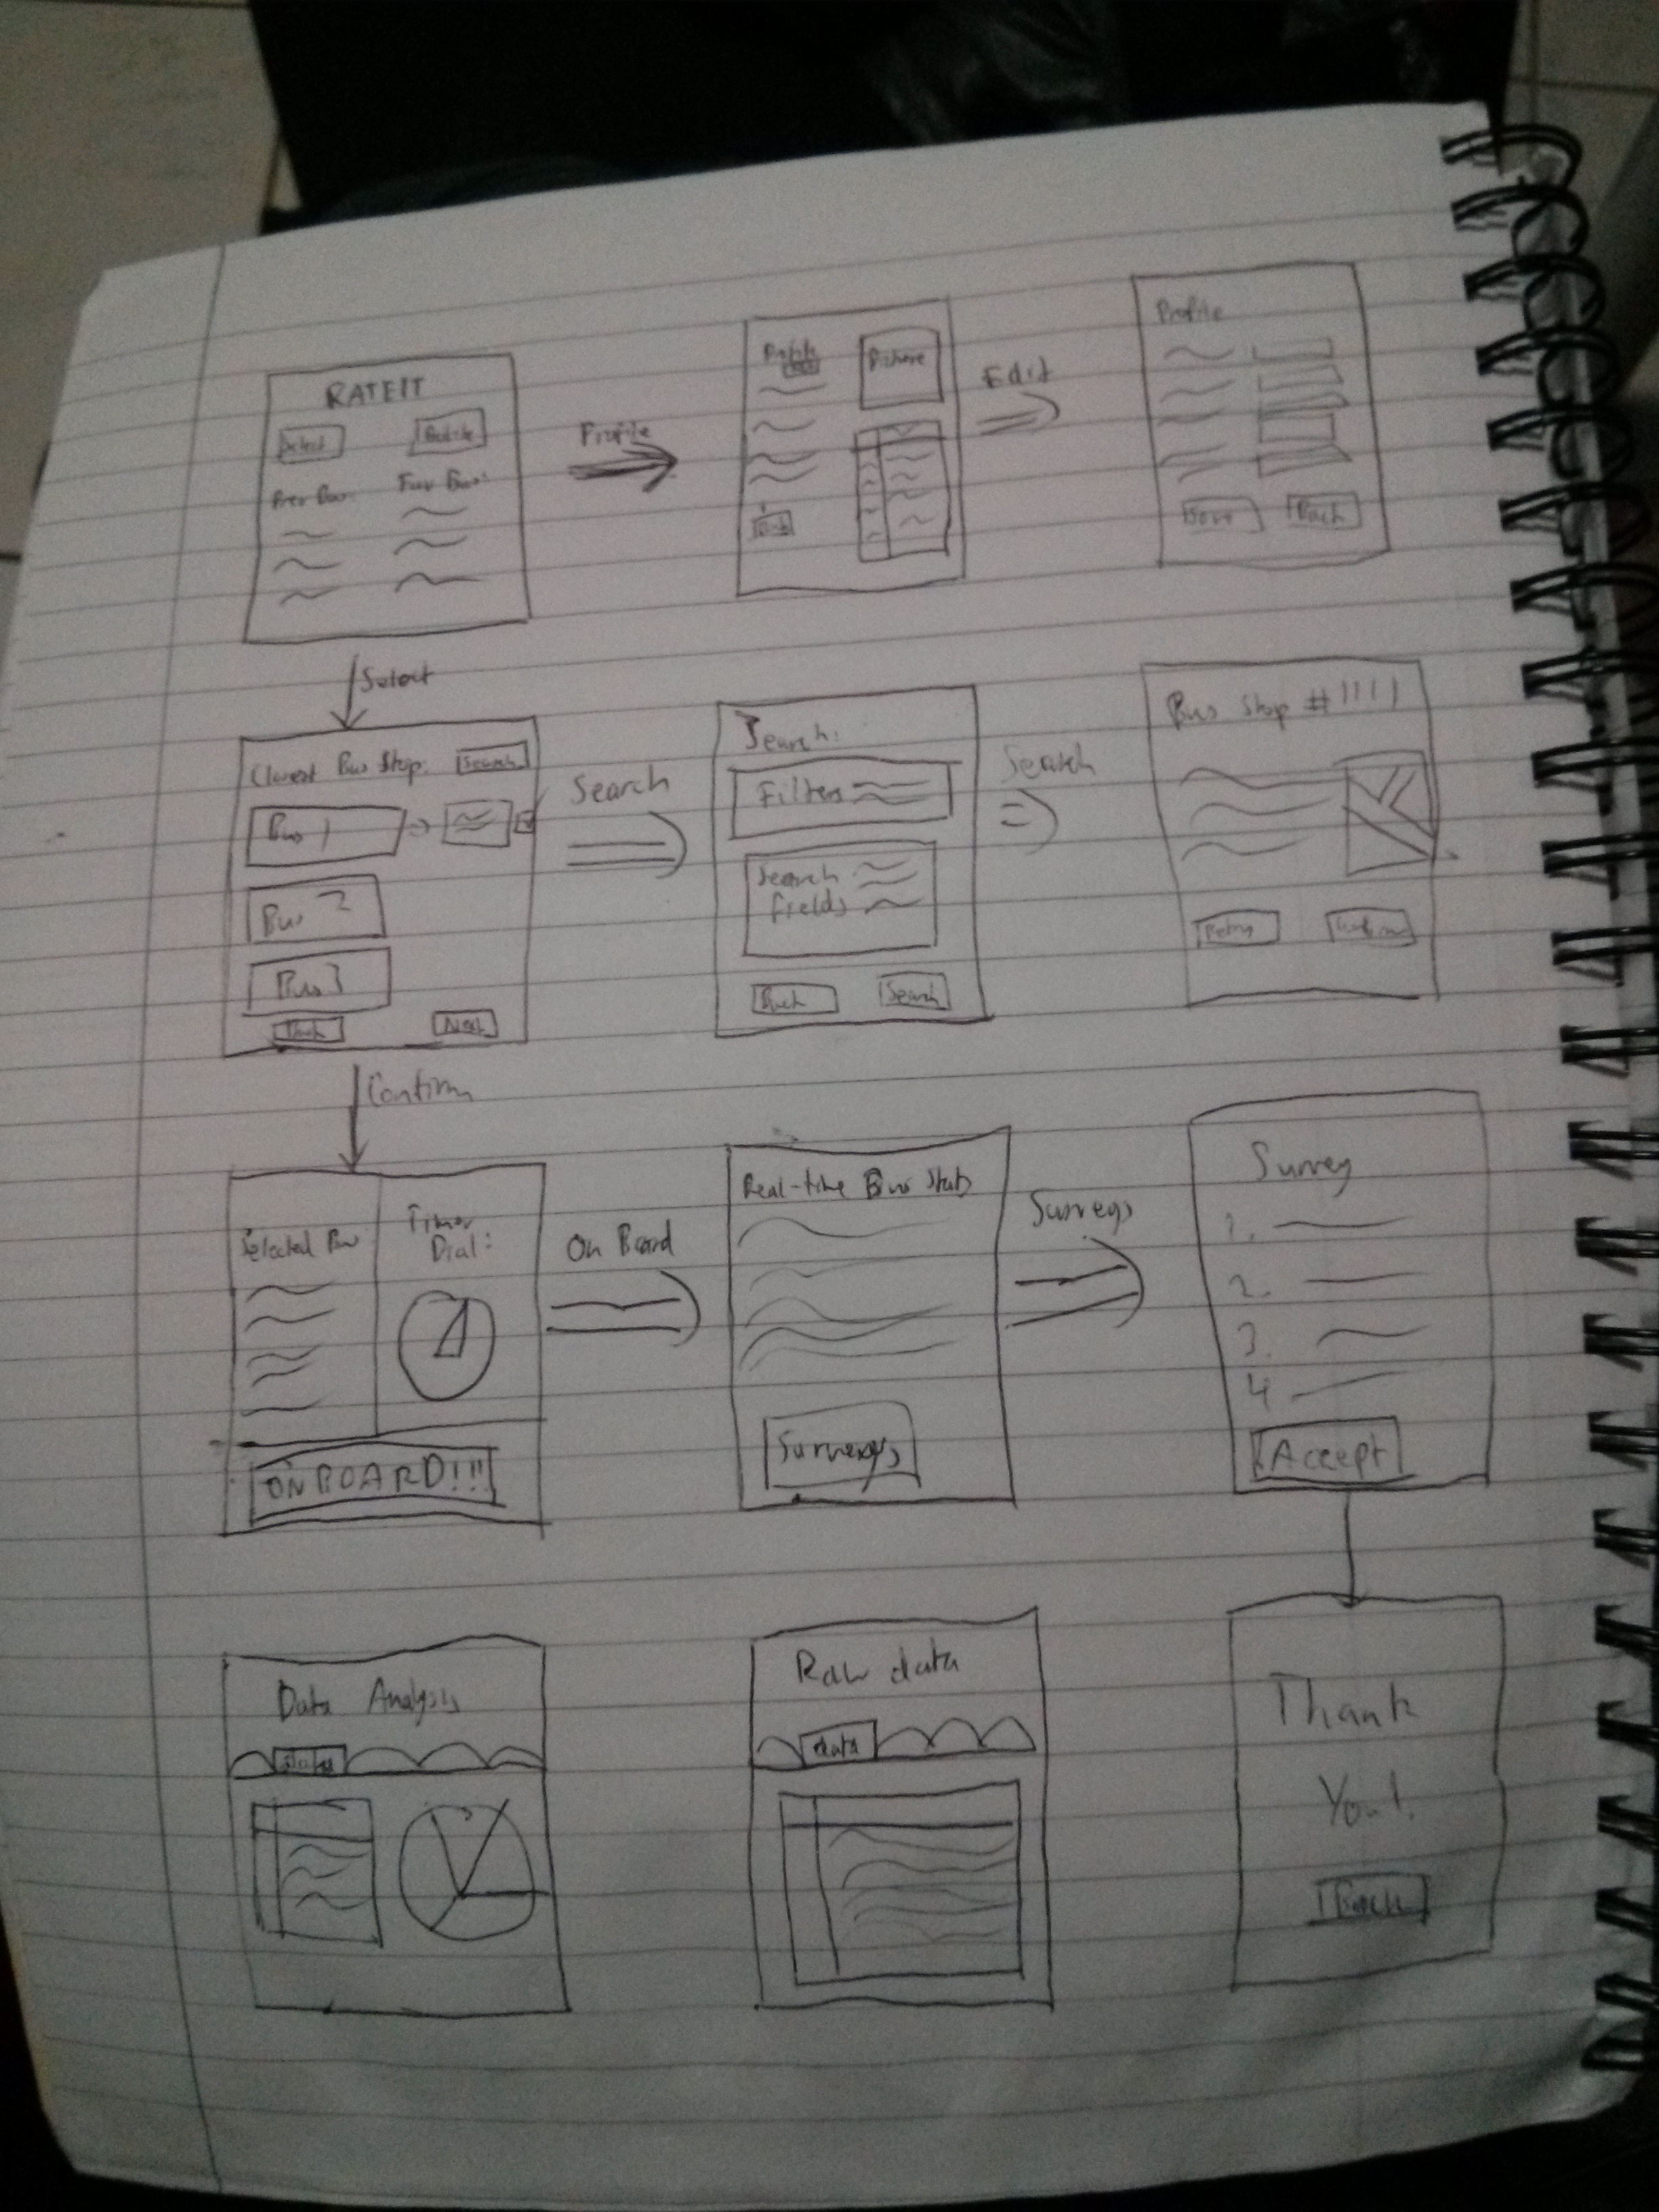 RATEIT
Select Profile
Prev Bus: Fav Bus:
Profile
Profile
Picture
Edit
Profile
Save Back
Select
Closest Bus Stop: Search
Bus 1
Bus 2
Bus 3
Back Next
Search
Search:
Filters
Search
fields
Back Search
Search
Bus Stop #1111
Retry Confirm
Confirm
Selected Bus
Timer
Dial:
ON BOARD!!!
On Board
Real-time Bus Stats
Surveys
Surveys
Survey
1.
2.
3.
4
Accept
Data Analysis
Raw data
data
Thank
You!
Back